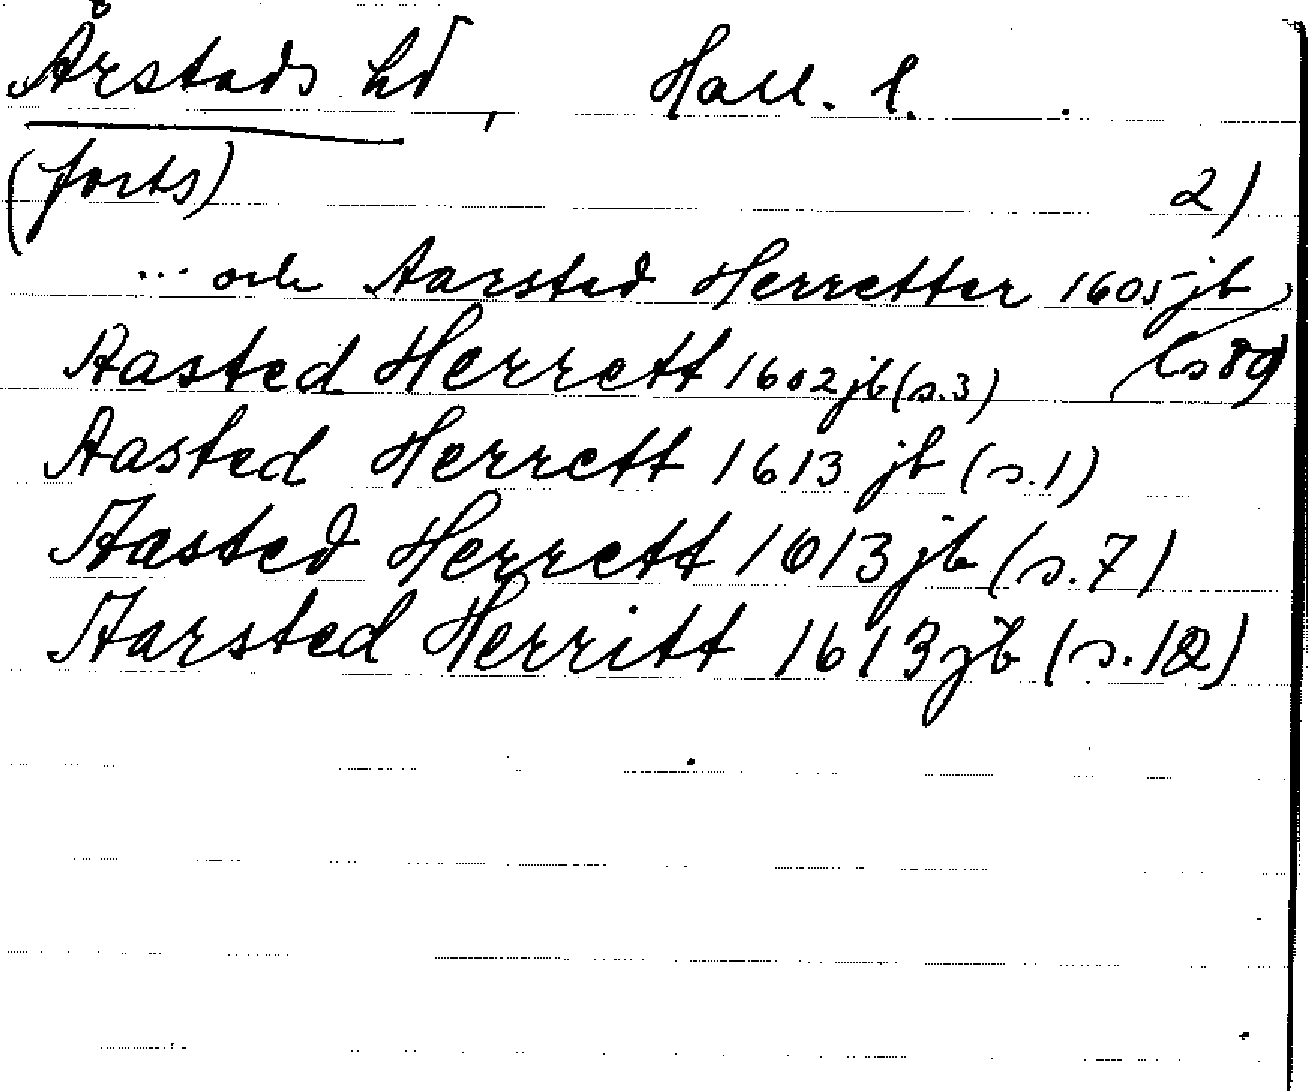 Årstads hd, Hall. l.
(forts) 2)
... och Aarsted Herretter 1605 jb
(s 89)
Aasted Herrett 1602 jb (s.3)
Aasted Herrett 1613 jb (s.1)
Aasted Herrett 1613 jb (s.7)
Aarsted Herritt 1613 jb (s.12)